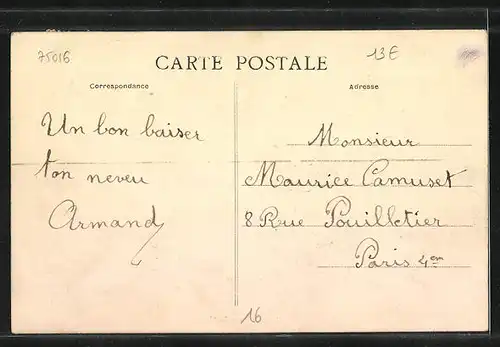 75016
13€
CARTE POSTALE
Correspondance
Adresse
Un bon baiser
ton neveu
Armand
Monsieur
Maurice Camuset
8 Rue Pouilletier
Paris 4em
16